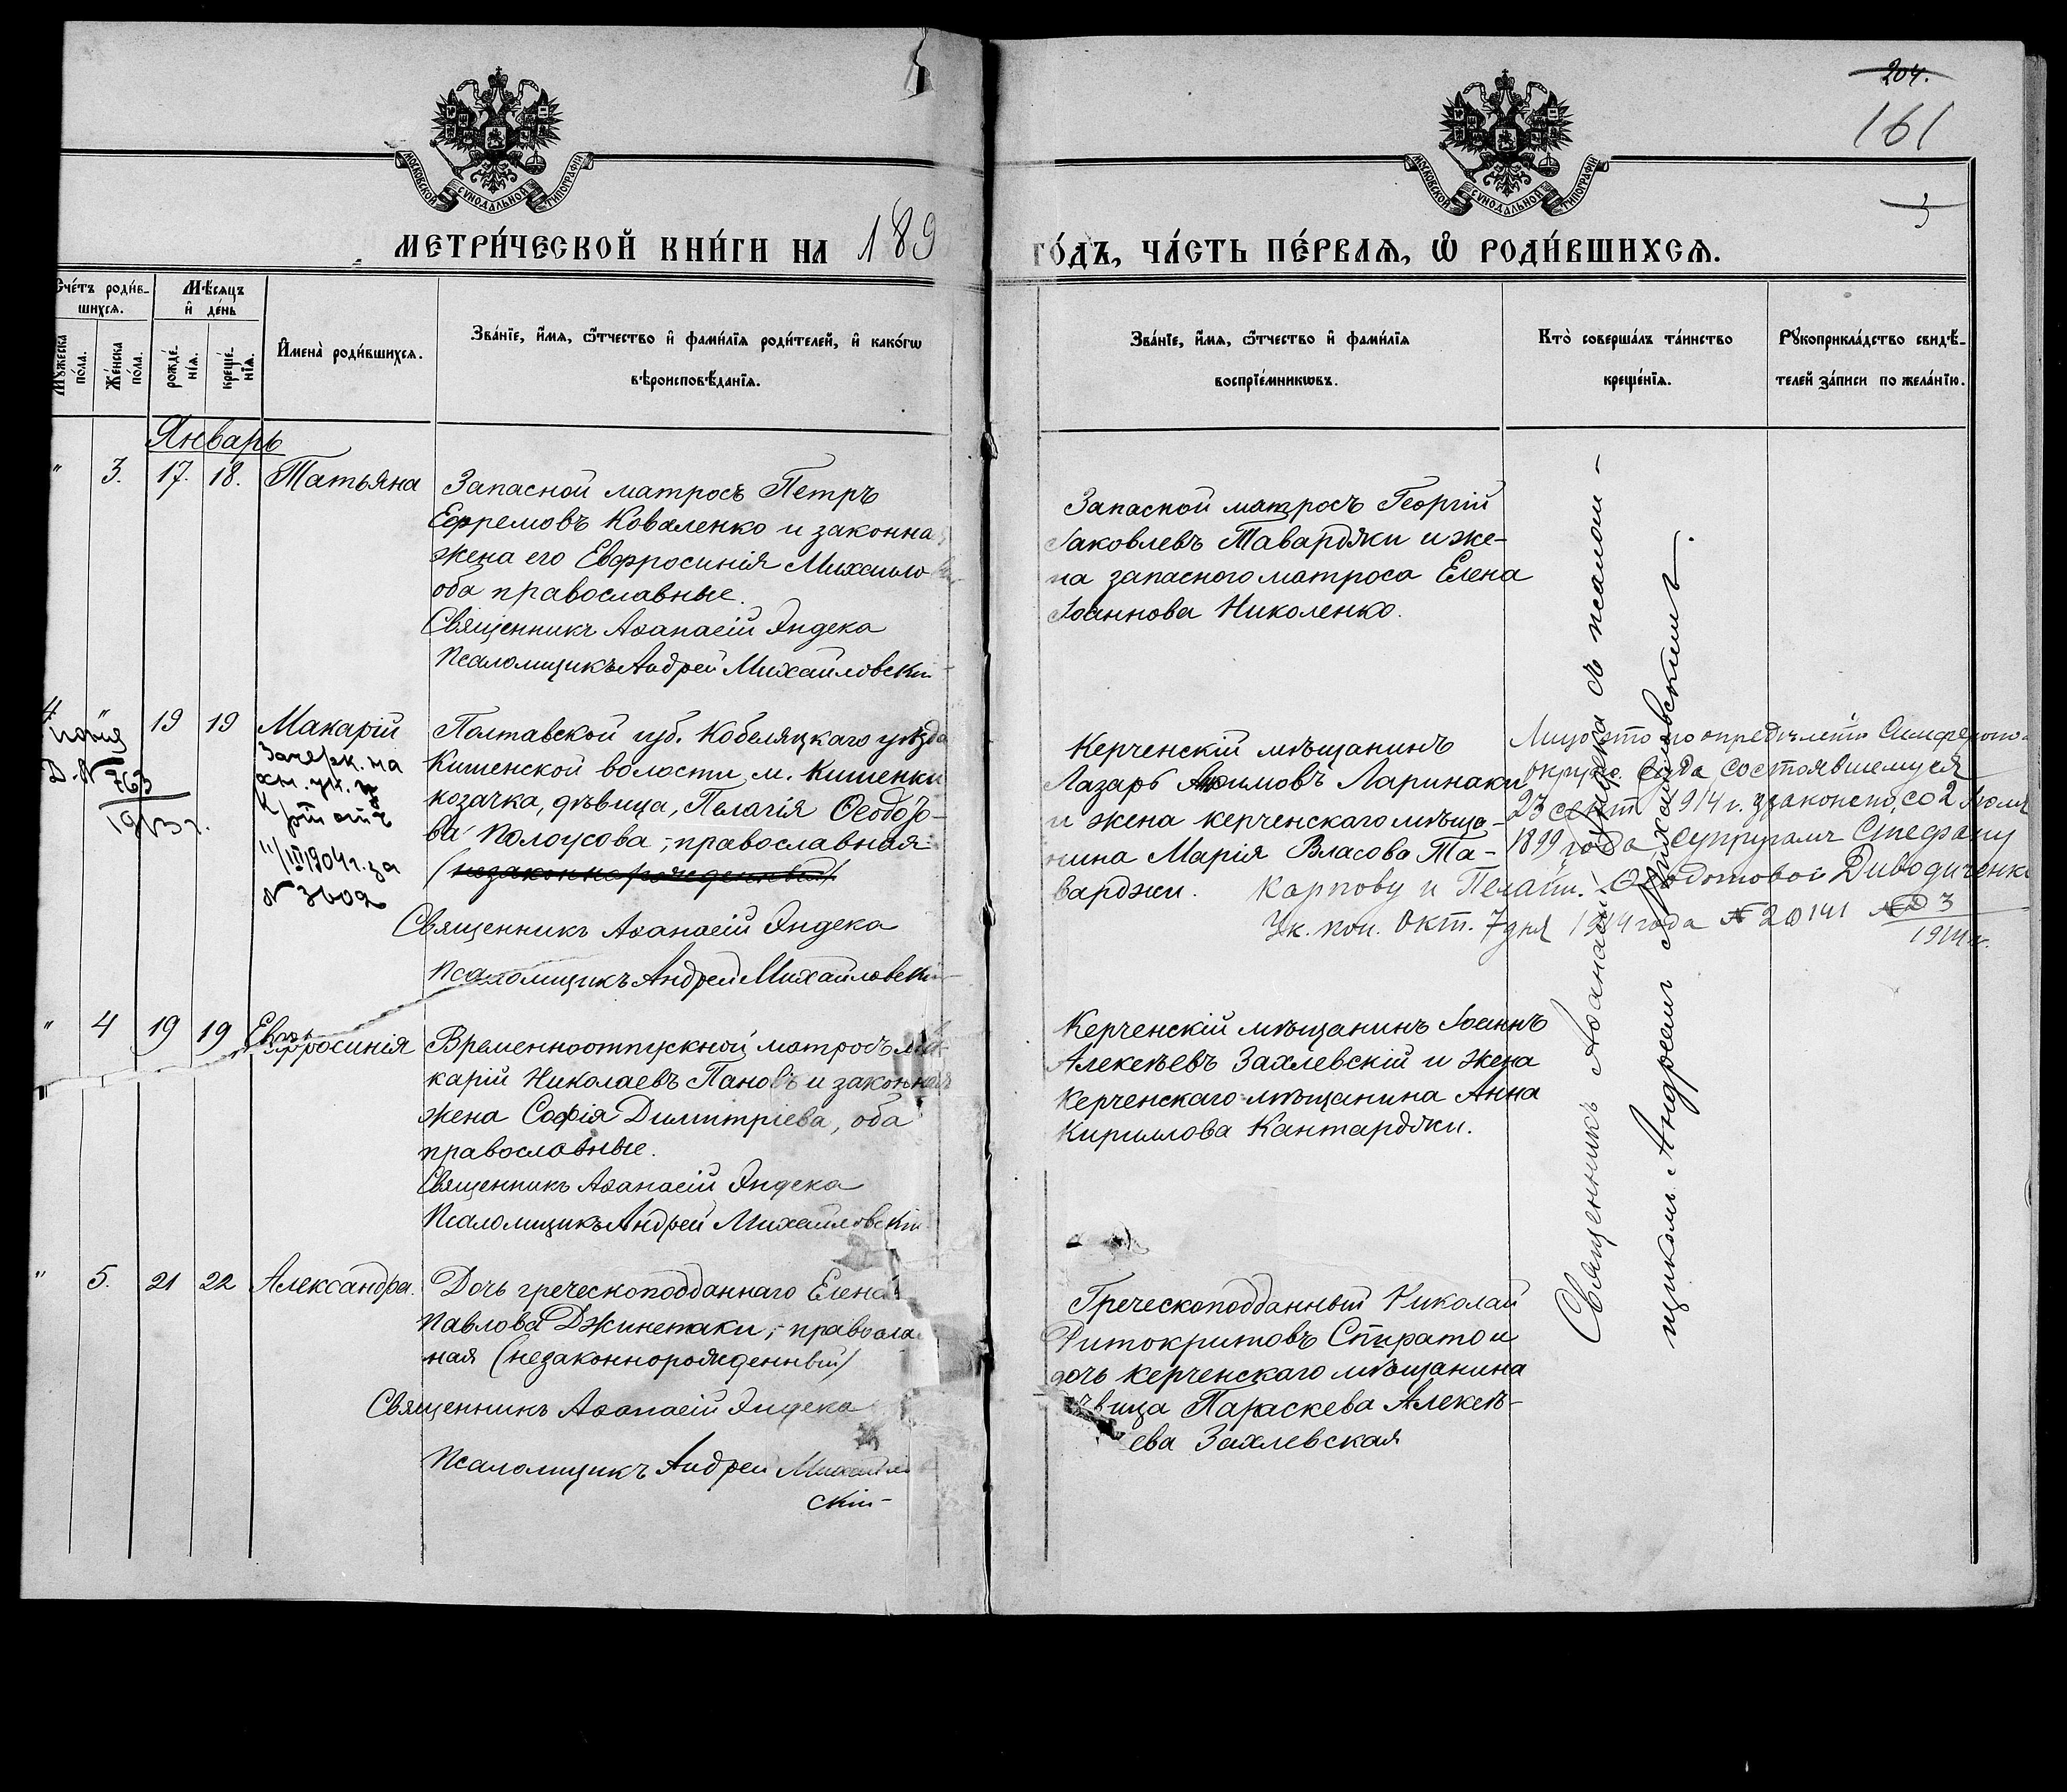 204.
161
МОСКОВСКОЙ СѴНОДАЛЬНОЙ ТИПОГРАФІИ
МОСКОВСКОЙ СѴНОДАЛЬНОЙ ТИПОГРАФІИ
МЕТРИ́ЧЕСКОЙ КНИ́ГИ НА 189
ГО́ДЪ, ЧА́СТЬ ПЕ́РВАѦ, Ѡ҆ РОДИ́ВШИХСѦ.
Сче́тъ роди́в-
шихсѧ.
Мꙋ́жеска по́ла.
Же́нска по́ла.
Мѣ́сѧцъ
и҆ де́нь
рожде́-
нїѧ.
креще́-
нїѧ.
И҆мена̀ роди́вшихсѧ.
Зва́нїе, и҆́мѧ, ѻ҆́тчество и҆ фами́лїѧ роди́телей, и҆ како́гѡ
вѣроисповѣ́данїѧ.
Зва́нїе, и҆́мѧ, ѻ҆́тчество и҆ фами́лїѧ
воспрїе́мникѡвъ.
Кто̀ соверша́лъ та́инство
креще́нїѧ.
Рꙋкоприкла́дство свидѣ́-
телей за́писи по жела́нїю.
Январь
" 3. 17. 18. Татьяна
Запасной матросъ Петръ
Ефремовъ Коваленко и законна
жена его Евфросинія Михаило
оба православные.
Священникъ Аѳанасій Яндека
Псаломщикъ Андрей Михайловскій
Запасной матросъ Георгій
Іаковлевъ Таварджи и же-
на запасного матроса Елена
Іоаннова Николенко.
4 " 19 19 Макарій
копія
В. № 763
1913 г.
Зачерк. на
осн. ук.
отъ
11/III 1904 г. за
№ 3602
Полтавской губ. Кобеляцкаго уѣзда
Кишенской волости, м. Кишенки
козачка, дѣвица, Пелагія Ѳеодо-
ва Полоусова, православная
(незаконнорожденный)
Священникъ Аѳанасій Яндека
Псаломщикъ Андрей Михайловскій
Керченскій мѣщанинъ
Лазарь Ларинаки
и жена керченскаго мѣща-
нина Марія Власова Та-
варджи.
Лицо это по опредѣленію Симфероп.
окружн. Суда, состоявшемуся
23 сент. 1914 г. узаконено, со 2 Іюля
1899 года супругамъ Стефану
Карпову и Пелагіи Диводиченк
Ук. пол. Окт. 7 дня 1914 года № 20141 № 3
1914 г.
" 4 19 19 Евфросинія
Временноотпускной матросъ Ма-
карій Николаевъ Пановъ и законная
жена Софія Димитріева, оба
православные.
Священникъ Аѳанасій Яндека
Псаломщикъ Андрей Михайловскій
Керченскій мѣщанинъ Іоаннъ
Алексѣевъ Захлевскій и жена
керченскаго мѣщанина Анна
Кириллова Кантарджи.
" 5. 21 22 Александра.
Дочь греческоподданнаго Елена
Павлова Джинетаки, правосла
ная (незаконнорожденный)
Священникъ Аѳанасій Яндека
Псаломщикъ Андрей Михайлов
скій
Греческоподданный Николай
Спирато и
дочь керченскаго мѣщанина
дѣвица Параскева Алексѣ-
ева Захлевская
Священникъ Аѳанасій Яндека съ псалом-
щикомъ Андреемъ Михайловскимъ.